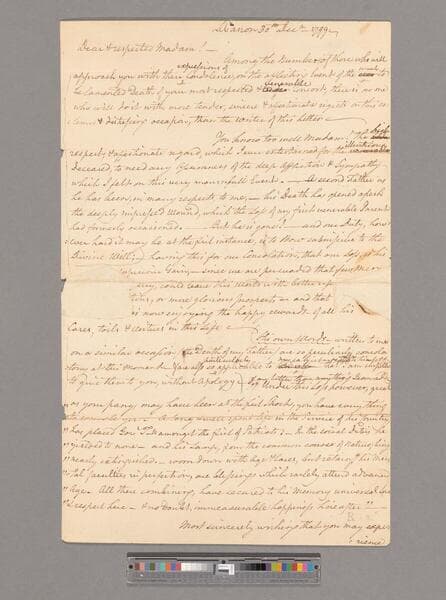 Lebanon 30th Decr. 1799
Dear & respected Madam! —
Among the number of those who will
expressions of
approach you with their condolence, on the afflicting Event of the
venerable
lamented Death of your most respected & consort, there is no one
who will do it with more tender, sincere & affectionate regrets on this so-
lemn & distressing occasion, than the writer of this letter —
You know too well Madam! the high
illustrious
respect, & affectionate regard, which I ever entertained for the
deceased, to need any assurances of the deep affliction & sympathy
which I felt on this very mournfull Event. — A second Father
he has been, in many respects to me, — his Death has opened afresh
the deeply impressed wound, which the loss of my first venerable Parent
had formerly occasioned. — But he is gone! — and our Duty, how-
ever hard it may be at the first instance, is to bow submissive to the
Divine Will; — having this for our Consolation, that our loss is his
Gain, — since we are persuaded that few Men
could leave this World with better
or more glorious prospects — and that
is now enjoying the happy reward of all his
Cares, toils & virtues in this life —
His own Words written to me
on a similar occasion the Death of my Father are so peculiarly consola-
tory at this moment
to give them to you, without Apology — Under this loss however great
"as your pangs may have been at the first shock, you have every thing
" — A long & well spent life in the Service of his Country
"has placed Govr. T— amongst the first of Patriots. — In the social Duties he
"yielded to none — and his Lamp, from the common course of Nature, being
"nearly extinguished — worn down with age & cares, but retaining his Men-
"tal faculties in perfection, are blessings which rarely attend advanced
"Age. All these combining, have secured to his Memory universal love
"& respect here — & no doubt, unmeasurable happiness hereafter" —
Most sincerely wishing that you may expe-
rience